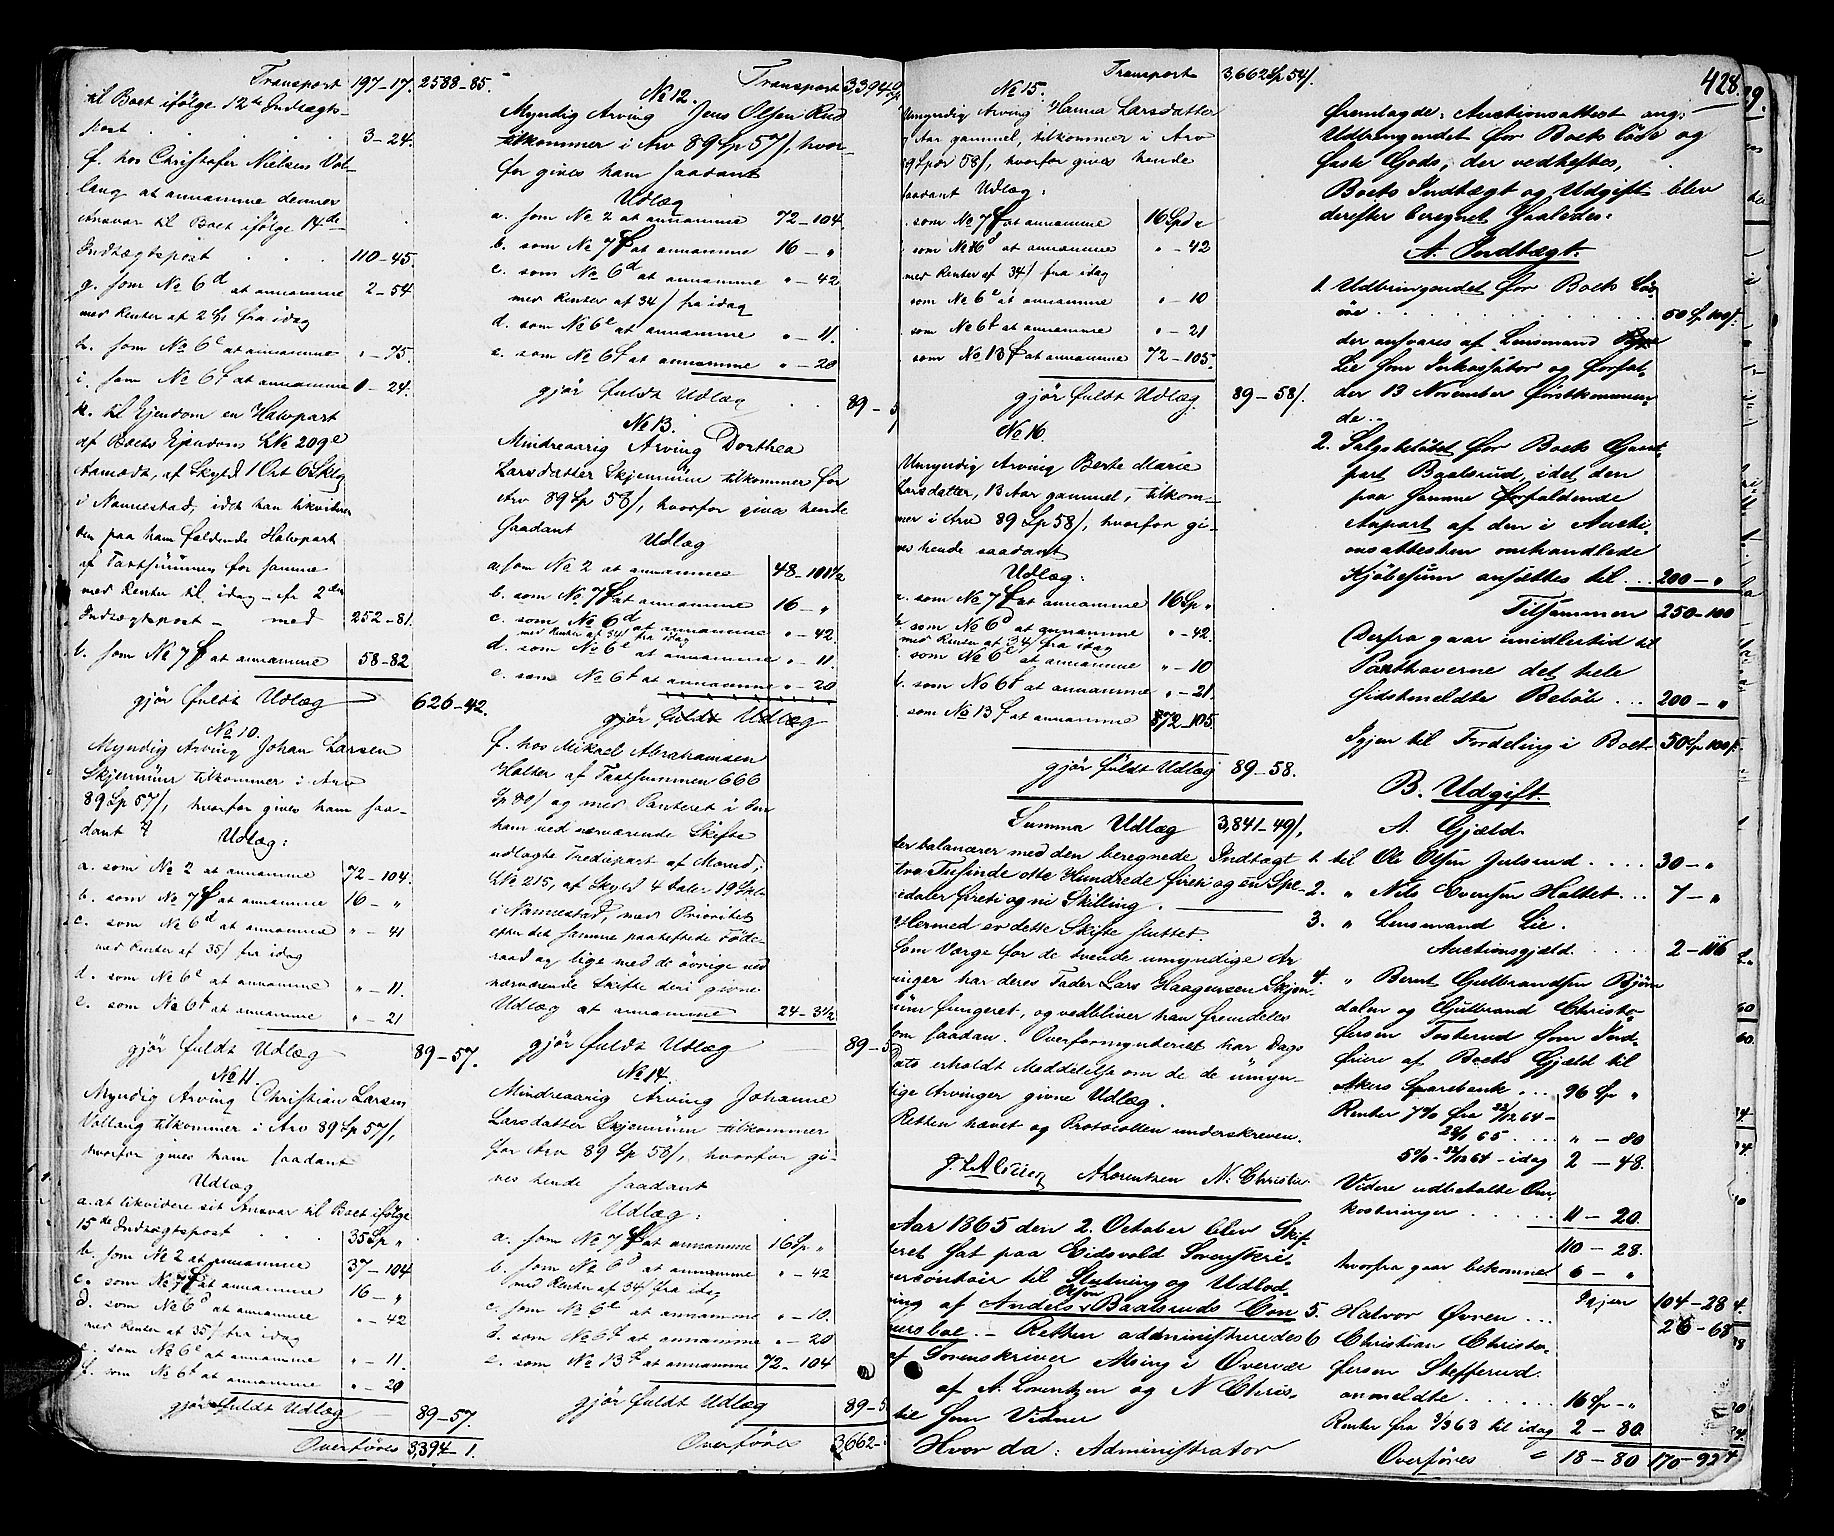 Transport 197-17. 2588-85.
til Boet ifølge 12te Indtægts-
post . . . 3-24.
f. hos Christofer Nielsen Vol-
lang at annamme dennes
Ansvar til Boet ifølge 14de
Indtægtspost . . . 110-45.
g. som No 6d at annamme 2-54.
med Renter af 2 Sp fra idag
h. som No 6e at annamme " -75.
i. som No 6f at annamme 0-24.
k. til Ejendom en Halvpart
af Boets Ejendom LNo 209e
Aamodt, af Skyld 1 Ort 6 Sklg
i Nannestad, idet han likviderer
den paa ham faldende Halvpart
af Taxtsummen for samme
med Renter til idag - fr 2den
Indtægtspost - med 252-81.
l. som No 7f at annamme 58-82
gjør fuldt Udlæg 626-42.
No 10.
Myndig Arving Johan Larsen
Skjennum tilkommer i Arv
89 Sp 57/, hvorfor gives ham saa-
dant
Udlæg:
a. som No 2 at annamme 72-104.
b. som No 7f at annamme 16 - "
c. som No 6d at annamme " -41
med Renter af 35/ fra idag
d. som No 6e at annamme " -11.
e. som No 6f at annamme " -21
gjør fuldt Udlæg 89-57.
No 11.
Myndig Arving Christian Larsen
Vollang tilkommer i Arv 89 Sp 57/,
hvorfor gives ham saadant
Udlæg
a. at likvidere sit Ansvar til Boet ifølge
15de Indtægtspost 35 Sp "
b. som No 2 at annamme 37-104
c. som No 7f at annamme 16 - "
d. som No 6d at annamme " -42
med Renter af 35/ fra idag
e. som No 6e at annamme " -11.
f. som No 6f at annamme " -20
gjør fuldt Udlæg 89-57.
Overføres 3,394-1.
Transport 3394
No 12.
Myndig Arving Jens Olsen Rud
tilkommer i Arv 89 Sp 57/, hvor-
for gives ham saadant
Udlæg
a. som No 2 at annamme 72-104.
b. som No 7f at annamme 16 - "
c. som No 6d at annamme " -42
med Renter af 34/ fra idag
d. som No 6e at annamme " -11.
e. som No 6f at annamme " -20
gjør fuldt Udlæg 89-5
No 13.
Mindreaarig Arving Dorthea
Larsdatter Skjennum tilkommer for
Arv 89 Sp 58/, hvorfor gives hende
saadant Udlæg
a. som No 2 at annamme 48-101 1/2
b. som No 7f at annamme 16 - "
c. som No 6d at annamme " -42.
med Renter af 34/ fra idag
d. som No 6e at annamme " -11.
e. som No 6f at annamme " -20
gjør fuldt Udlæg
f. hos Mikael Abrahamsen
Holter af Taxtsummen 666
Sp 80/ og med Panteret i den
ham ved nærværende Skifte
udlagte Trediepart af Maurud,
LNo 215, af Skyld 4 Daler 19 Sk
i Nannestad, med Prioritet
efter det samme paaheftede Føde-
raad og lige med de øvrige ved
nærværende Skifte deri givne
Udlæg at annamme 24-3 1/2
gjør fuldt Udlæg 89-5
No 14.
Mindreaarig Arving Johanne
Larsdatter Skjennum tilkommer
for Arv 89 Sp 58/, hvorfor gi-
ves hende saadant
Udlæg:
a. som No 7f at annamme 16 Sp "
b. som No 6d at annamme " -42
med Renter af 34/ fra idag
c. som No 6e at annamme " -10.
d. som No 6f at annamme " -20
e. som No 13f at annamme 72-104
gjør fuldt Udlæg 89-5
Overføres 3,662-
Transport 3,662 Sp 54/.
No 15.
Umyndig Arving Hanna Larsdatter
Aar gammel, tilkommer i Arv
9 Spdr 58/, hvorfor gives hende
saadant Udlæg:
som No 7f at annamme 16 Spd "
som No 6d at annamme " -42
med Renter af 34/ fra idag
som No 6e at annamme " -10
som No 6f at annamme " -21
som No 13f at annamme 72-105.
gjør fuldt Udlæg. 89-58/.
No 16.
Umyndig Arving Berte Marie
Larsdatter, 13 Aar gammel, tilkom-
mer i Arv 89 Sp 58/, hvorfor gi-
ves hende saadant
Udlæg:
som No 7f at annamme 16 Sp "
som No 6d at annamme " -42.
med Renter af 34/ fra idag
som No 6e at annamme " -10
som No 6f at annamme " -21
som No 13f at annamme 72-105.
gjør fuldt Udlæg 89-58.
Summa Udlæg 3,841-49/,
der balancerer med den beregnede Indtægt
tre Tusinde otte Hundrede fireti og en Spe-
ciedaler fireti og ni Skilling.
Hermed er dette Skifte sluttet.
Som Værge for de tvende umyndige Ar-
vinger har deres Fader Lars Haagensen Skjen-
num fungeret, og vedbliver han fremdeles
som saadan. Overformynderiet har Dags
Dato erholdt Meddelelse om de de umyn-
dige Arvinger givne Udlæg.
Retten hævet og Protocollen underskreven.
A Lorentzen N. Christi
Aar 1865 den 2. October blev Skif-
teret sat paa Eidsvold Sorenskri-
verkontoir til Slutning og Udlod-
ning af Anders Baalsruds Con-
cursboe. - Retten administreredes
af Sorenskriver Alsing i Overvær
af A. Lorentzen og N Chris-
til som Vidner
Hvor da: Administrator
428.
fremlagde: Auctionsattest ang:
Udbringendet for Boets løse og
faste Gods, der vedheftes,
Boets Indtægt og Udgift blev
derefter beregnet saaledes:
A. Indtægt.
1. Udbringendet for Boets Løs-
øre . . . . 50 Sp 100/.
der ansvares af Lensmand
Lie som Inkassator og forfal-
der 13 November førstkommen-
de. -
2. Salgsbeløbet for Boets Gaar-
part Baalsrud, idet den
paa samme forfaldende
Anpart af den i Aucti-
onsattesten omhandlede
Kjøbesum ansættes til ... 200 - "
Tilsammen 250-100
Derfra gaar imidlertid til
Panthaverne det hele
sidstmeldte Beløb 200 - "
Igjen til Fordeling i Boet 50 Sp 100/.
B. Udgift.
A. Gjæld.
1. til Ole Olsen Julsrud .... 30 - "
2. " Nils Evensen Holter ... 7 - "
3. " Lensmand Lie.
Auctionsgjæld. . . 2-116
4. " Bernt Gulbrandsen Bjørn-
dalen og Gulbrand Christo-
fersen Tosterud som Ind-
friere af Boets Gjæld til
Akers Sparebank ... 96 Sp "
Renter 7% fra 22/12 64 -
28/1 65 .... " -80
5% - 22/12 64 - idag 2-48.
Videre udbetalte Om-
kostninger ..... 11-20.
110-28.
hvorfra gaar bekomne 6 - "
Igjen 104-28
5. Halvor Ørven ... 26-68
6 Christian Christo-
fersen Stefferud
anmeldte ..... 16 Sp - "
Renter fra 9/3 63 til idag 2-80.
Overføres 18-80 170-92